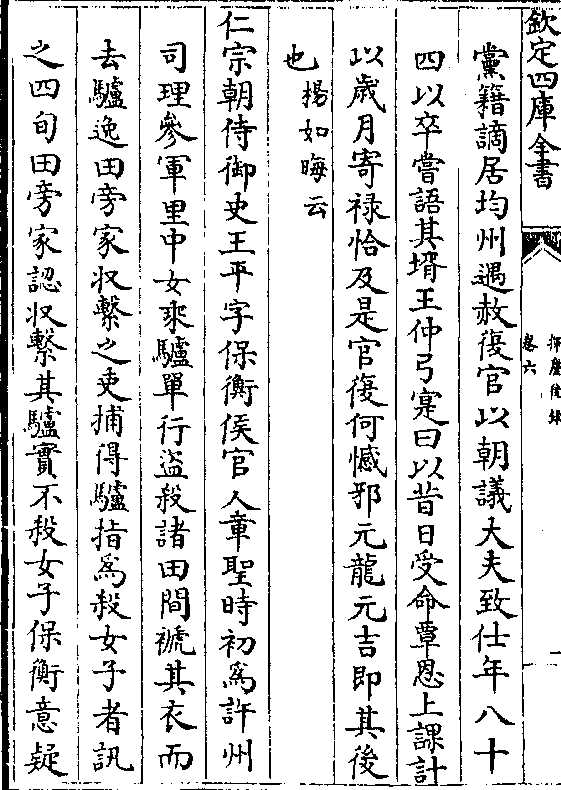 欽定四庫全書
揮麈後録
卷六
一
黨籍謫居均州遇赦復官以朝議大夫致仕年八十
四以卒嘗語其壻王仲弓寔曰以昔日受命覃恩上課計
以歲月寄禄恰及是官復何憾邪元龍元吉即其後
也揚如晦云
仁宗朝侍御史王平字保衡侯官人章聖時初為許州
司理參軍里中女乘驢單行盜殺諸田間褫其衣而
去驢逸田旁家収繫之吏捕得驢指為殺女子者訊
之四旬田旁家認収繫其驢實不殺女子保衡意疑